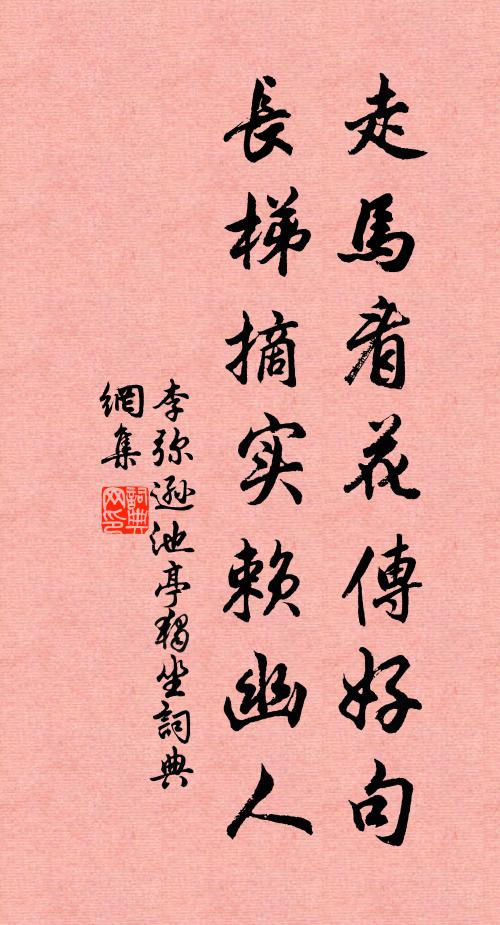 走馬看花傳好句
長梯摘实赖幽人
李弥遜池亭独坐詞典
網集
詞典
网印